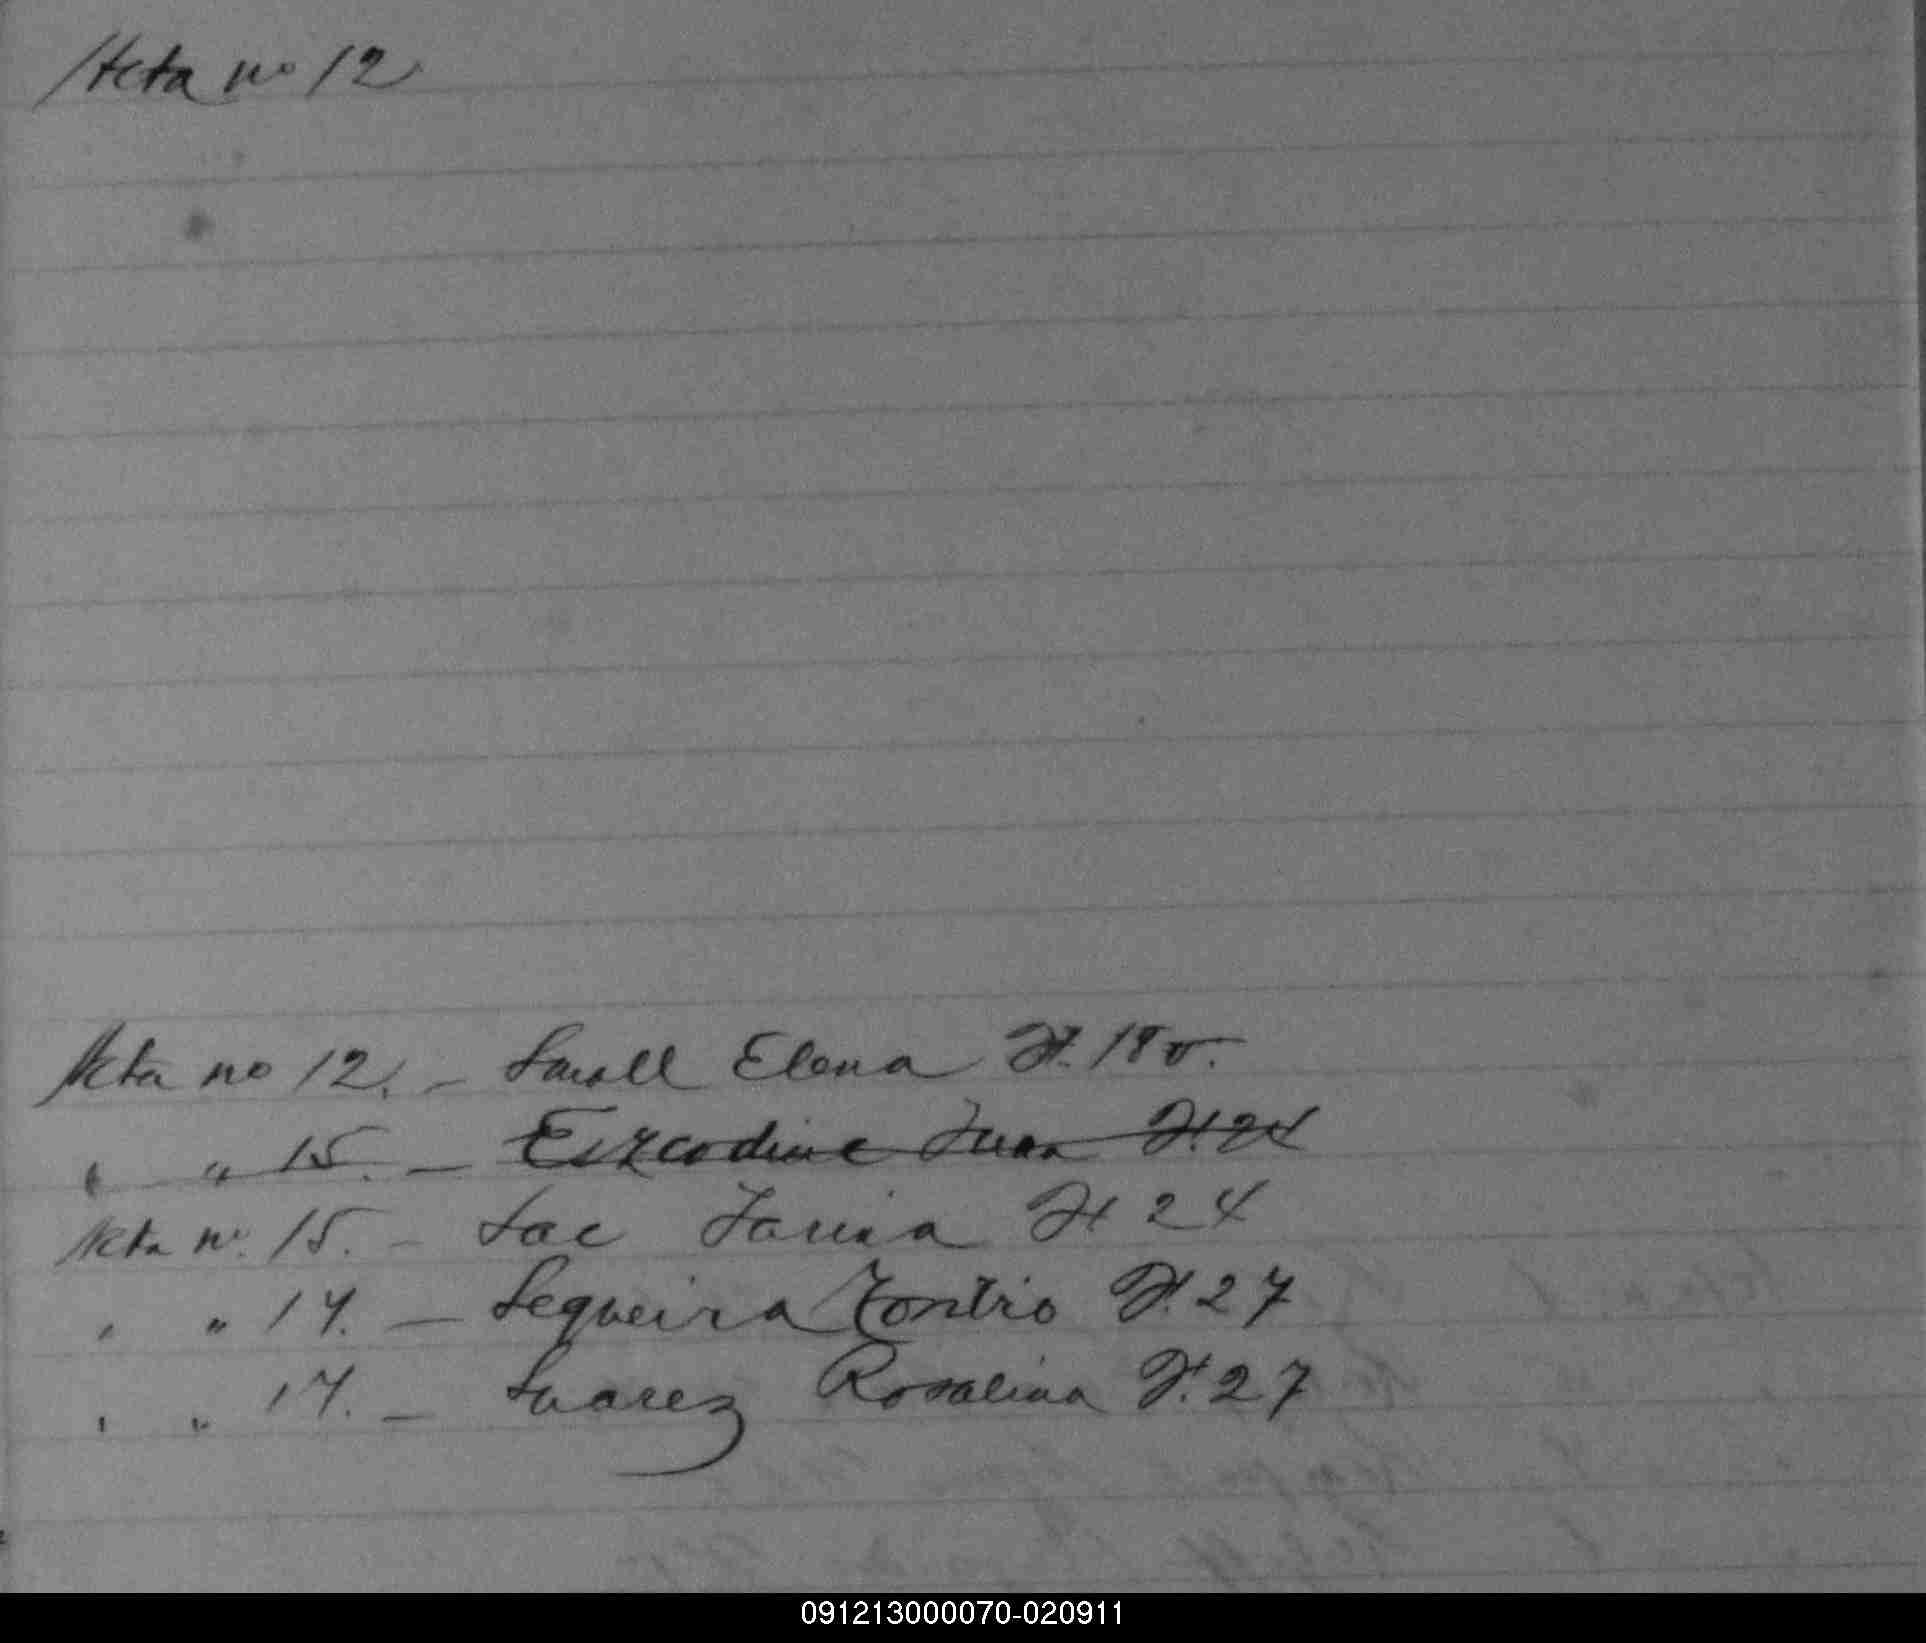 Acta no 12
Acta no 12. - Small Elena F. 18 v.
" " 15. - Juan F. 24
Acta no. 15. - Sac F 24
" " 17. - Sequeira F. 27
" " 17. - Suarez Rosalina F. 27
091213000070-020911